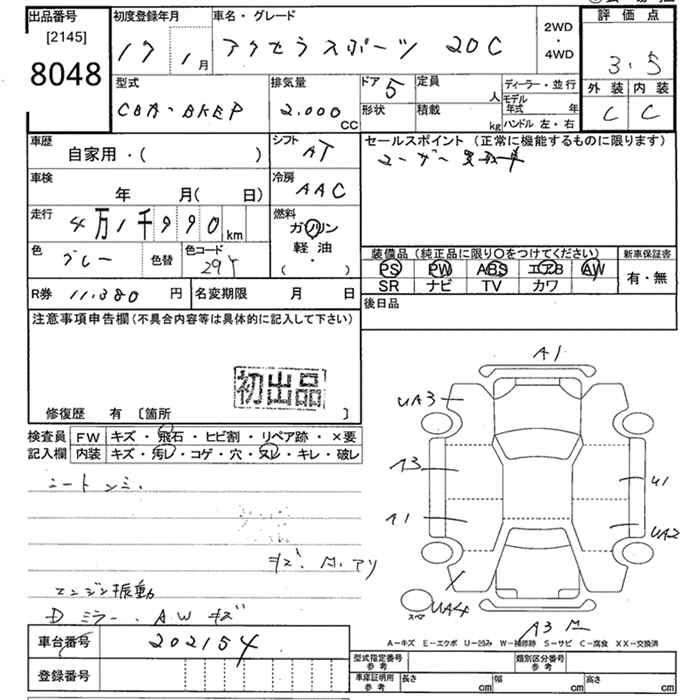 出品番号 初度登録年月 車名・グレード 2WD・4WD 評価点
[2145] 8048 17 1月 アクセラスポーツ 20C 3.5
型式 排気量 ドア 5 定員 人 ディーラー・並行 外装 内装
CBA-BKEP 2,000 CC 形状 積載 kg モデル年式 年 ハンドル 左・右 C C
車歴 自家用・( ) シフト AT セールスポイント (正常に機能するものに限ります)
ユーザー買取車
車検 年 月( 日) 冷房 AAC
走行 4万1千990km 燃料 ガソリン 軽油・( )
色 グレー 色替 色コード 装備品 (純正品に限り○をつけてください) 新車保証書
PS PW ABS エアB AW 有・無
SR ナビ TV カワ
R券 11,380円 名変期限 月 日 後日品
注意事項申告欄(不具合内容等は具体的に記入して下さい)
初出品
修復歴 有 [箇所 ]
検査員 FW キズ・飛石・ヒビ割・リペア跡・×要
記入欄 内装 キズ・汚レ・コゲ・穴・スレ・キレ・破レ
シートシミ.
エンジン振動
Dミラー.AWキズ
車台番号 202154
登録番号
A1
UA3
A3
A1
U1
UA2
UA4
スペア
A3
A-キズ E-エクボ U-凹み W-補修跡 S-サビ C-腐食 XX-交換済
型式指定番号参考 類別区分番号参考
車庫証明用参考 長さ cm 幅 cm 高さ cm